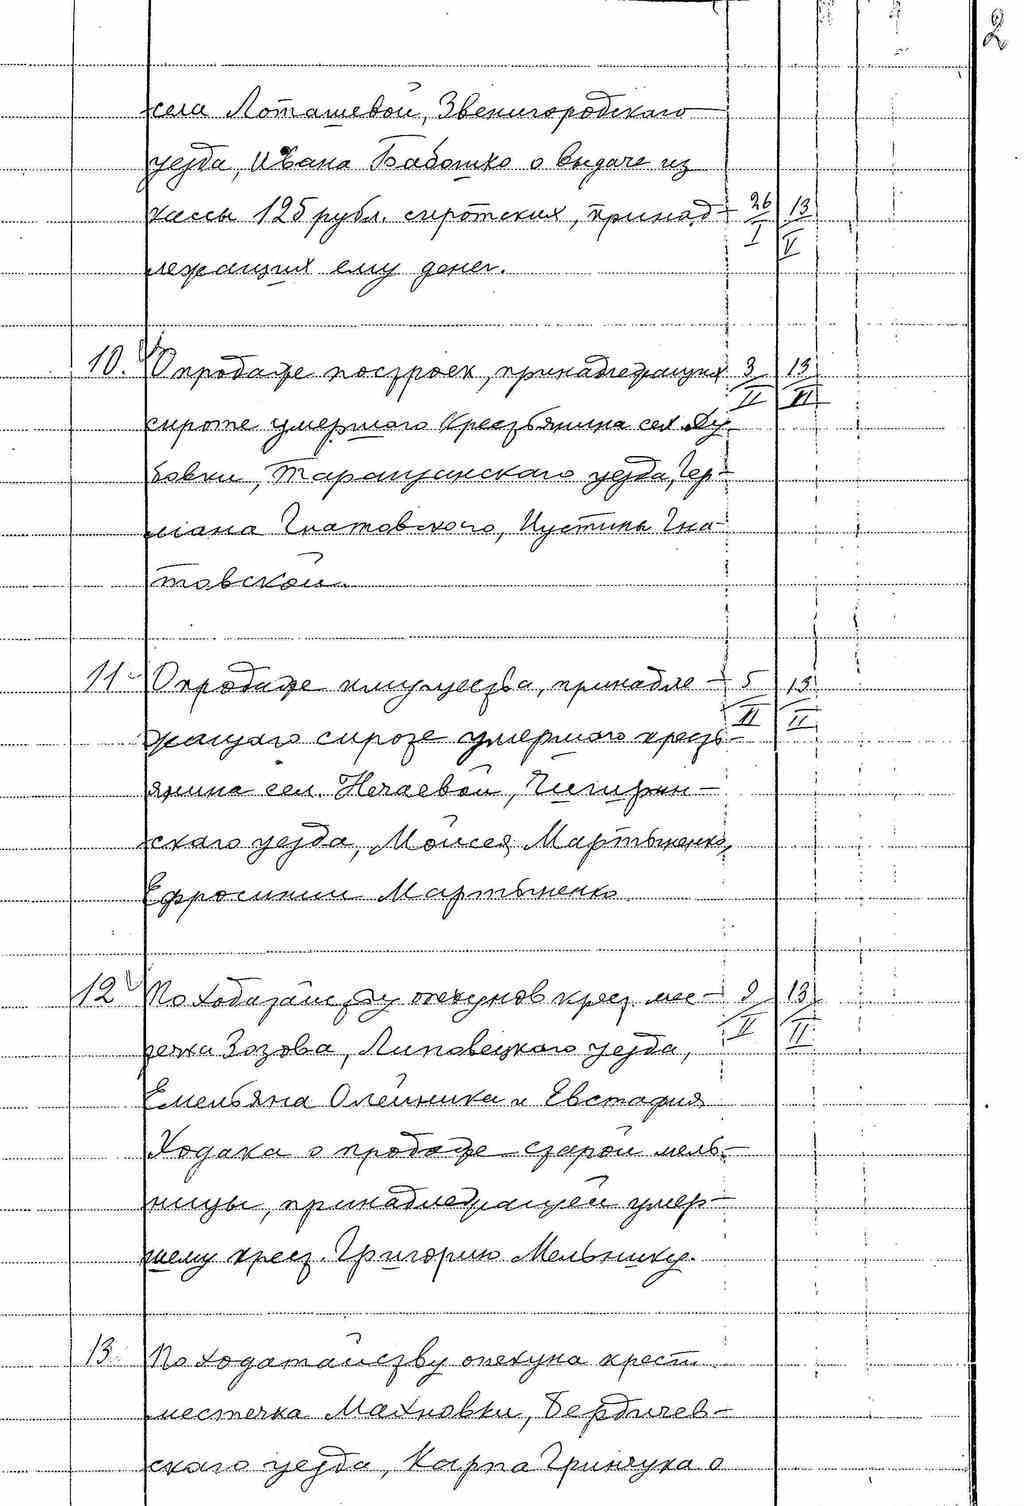 2
села Лоташевой, Звенигородскаго
уезда, Ивана Бабошко о выдаче из
кассы 125 рубл. сиротских, принад- 26/I 13/V
лежащих ему денег.
10. О продаже построек, принадлежащих 3/II 13/II
сироте умершаго крестьянина сел. Ду-
бовки, Таращанскаго уезда, Гер-
мана Гнатовского, Иустины Гна-
товской.
11 О продаже имущества, принадле- 5/II 13/II
жащаго сироте умершаго кресть-
янина сел. Нечаевой, Чигирин-
скаго уезда, Моисея Мартыненко,
Ефросинии Мартыненко
12 По ходатайству опекунов крест. мес- 9/II 13/II
течка Зозова, Липовецкаго уезда,
Емельяна Олейника и Евстафия
Ходака о продаже старой мель-
ницы, принадлежащей умер-
шему крест. Григорию Мельнику.
13. По ходатайству опекуна крест.
местечка Махновки, Бердичев-
скаго уезда, Карпа Гринчука о